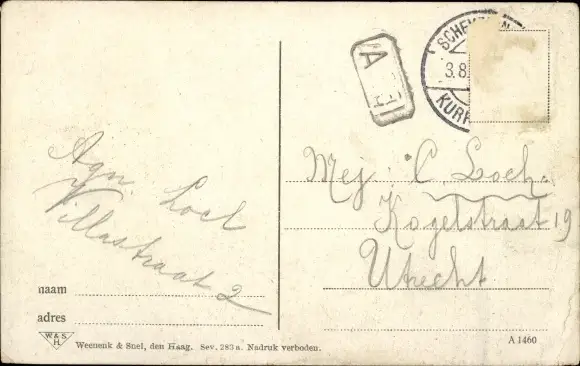 SCHEV
3.8
KUR
A
H
Mej. C. Loch.
Kogelstraat 19
Utrecht
Agn. Loch
Villastraat 2
naam
adres
W & S.
H.
Weenenk & Snel, den Haag. Sev. 283 a. Nadruk verboden.
A 1460